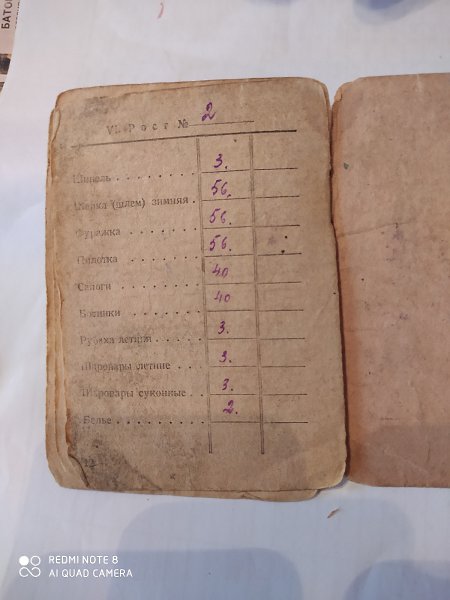 БАТО
VI. Рост № 2
Шинель . . . . . . . 3.
Шапка (шлем) зимняя . 56.
Фуражка . . . . . . 56.
Пилотка . . . . . . 56.
Сапоги . . . . . . . 40
Ботинки . . . . . . 40
Рубаха летняя . . . . . 3.
Шаровары летние . . . 3.
Шаровары суконные . . 3.
Белье . . . . . . . . 2.
12
REDMI NOTE 8
AI QUAD CAMERA